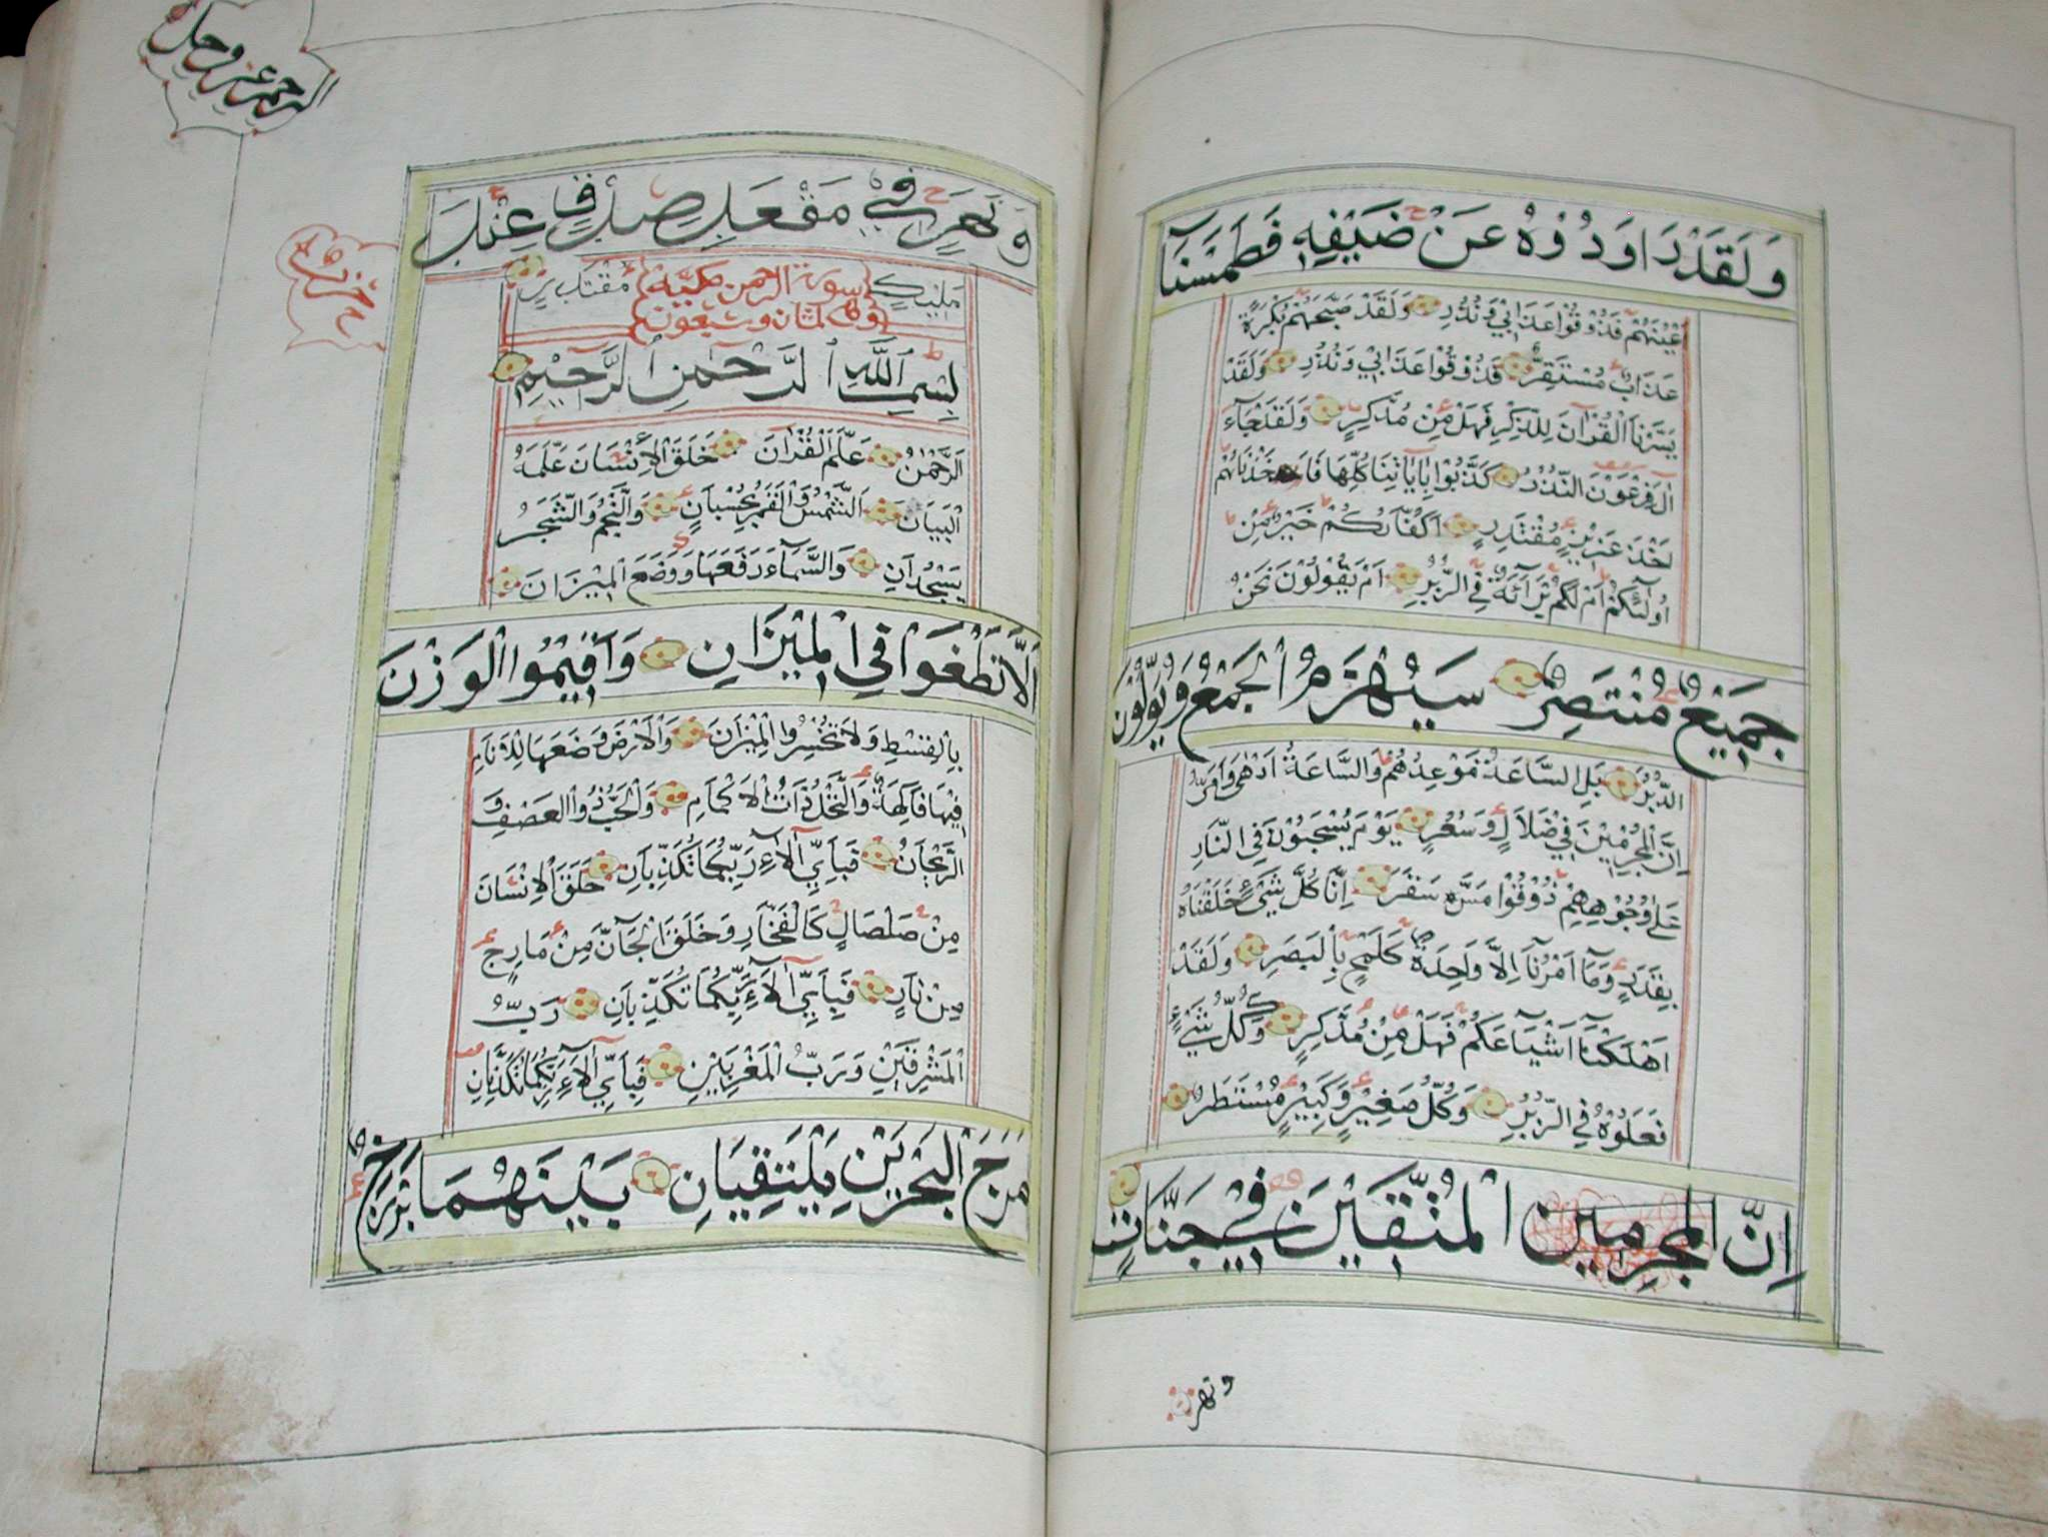 وَلَقَدْ رَاوَدُوهُ عَنْ ضَيْفِهِ فَطَمَسْنَآ
اَعْيُنَهُمْ فَذُوقُوا عَذَابِي وَنُذُرِ وَلَقَدْ صَبَّحَهُمْ بُكْرَةً
عَذَابٌ مُسْتَقِرٌّ فَذُوقُوا عَذَابِي وَنُذُرِ وَلَقَدْ
يَسَّرْنَا الْقُرْآنَ لِلذِّكْرِ فَهَلْ مِنْ مُدَّكِرٍ وَلَقَدْ جَآءَ
آلَ فِرْعَوْنَ النُّذُرُ كَذَّبُوا بِاٰيَاتِنَا كُلِّهَا فَاَخَذْنَاهُمْ
اَخْذَ عَزِيزٍ مُقْتَدِرٍ اَكُفَّارُكُمْ خَيْرٌ مِنْ
اُولٰٓئِكُمْ اَمْ لَكُمْ بَرَآئَةٌ فِي الزُّبُرِ اَمْ يَقُولُونَ نَحْنُ
جَمِيْعٌ مُنْتَصِرٌ سَيُهْزَمُ الْجَمْعُ وَيُوَلُّوْنَ
الدُّبُرَ بَلِ السَّاعَةُ مَوْعِدُهُمْ وَالسَّاعَةُ اَدْهٰى وَاَمَرُّ
اِنَّ الْمُجْرِمِيْنَ فِي ضَلَالٍ وَسُعُرٍ يَوْمَ يُسْحَبُوْنَ فِي النَّارِ
عَلٰى وُجُوْهِهِمْ ذُوْقُوْا مَسَّ سَقَرَ اِنَّا كُلَّ شَيْءٍ خَلَقْنَاهُ
بِقَدَرٍ وَمَآ اَمْرُنَآ اِلَّا وَاحِدَةٌ كَلَمْحٍ بِالْبَصَرِ وَلَقَدْ
اَهْلَكْنَآ اَشْيَاعَكُمْ فَهَلْ مِنْ مُدَّكِرٍ وَكُلُّ شَيْءٍ
فَعَلُوْهُ فِي الزُّبُرِ وَكُلُّ صَغِيْرٍ وَكَبِيْرٍ مُسْتَطَرٌ
اِنَّ الْمُجْرِمِين الْمُتَّقِيْنَ فِيْ جَنَّاتٍ
ونهر
الرحمن عز وجل
وَنَهَرٍ فِيْ مَقْعَدِ صِدْقٍ عِنْدَ
مَلِيْكٍ مُقْتَدِرٍ
سورة الرحمن مكية
وهي ثمان وسبعون
بِسْمِ اللّٰهِ الرَّحْمٰنِ الرَّحِيْمِ
اَلرَّحْمٰنُ عَلَّمَ الْقُرْآنَ خَلَقَ الْاِنْسَانَ عَلَّمَهُ
الْبَيَانَ اَلشَّمْسُ وَالْقَمَرُ بِحُسْبَانٍ وَالنَّجْمُ وَالشَّجَرُ
يَسْجُدَانِ وَالسَّمَآءَ رَفَعَهَا وَوَضَعَ الْمِيْزَانَ
اَلَّا تَطْغَوْا فِي الْمِيْزَانِ وَاَقِيْمُوا الْوَزْنَ
بِالْقِسْطِ وَلَا تُخْسِرُوا الْمِيْزَانَ وَالْاَرْضَ وَضَعَهَا لِلْاَنَامِ
فِيْهَا فَاكِهَةٌ وَالنَّخْلُ ذَاتُ الْاَكْمَامِ وَالْحَبُّ ذُو الْعَصْفِ وَ
الرَّيْحَانُ فَبِاَيِّ آلَآءِ رَبِّكُمَا تُكَذِّبَانِ خَلَقَ الْاِنْسَانَ
مِنْ صَلْصَالٍ كَالْفَخَّارِ وَخَلَقَ الْجَآنَّ مِنْ مَارِجٍ
مِنْ نَارٍ فَبِاَيِّ آلَآءِ رَبِّكُمَا تُكَذِّبَانِ رَبُّ
الْمَشْرِقَيْنِ وَرَبُّ الْمَغْرِبَيْنِ فَبِاَيِّ آلَآءِ رَبِّكُمَا تُكَذِّبَانِ
مَرَجَ الْبَحْرَيْنِ يَلْتَقِيَانِ بَيْنَهُمَا بَرْزَخٌ